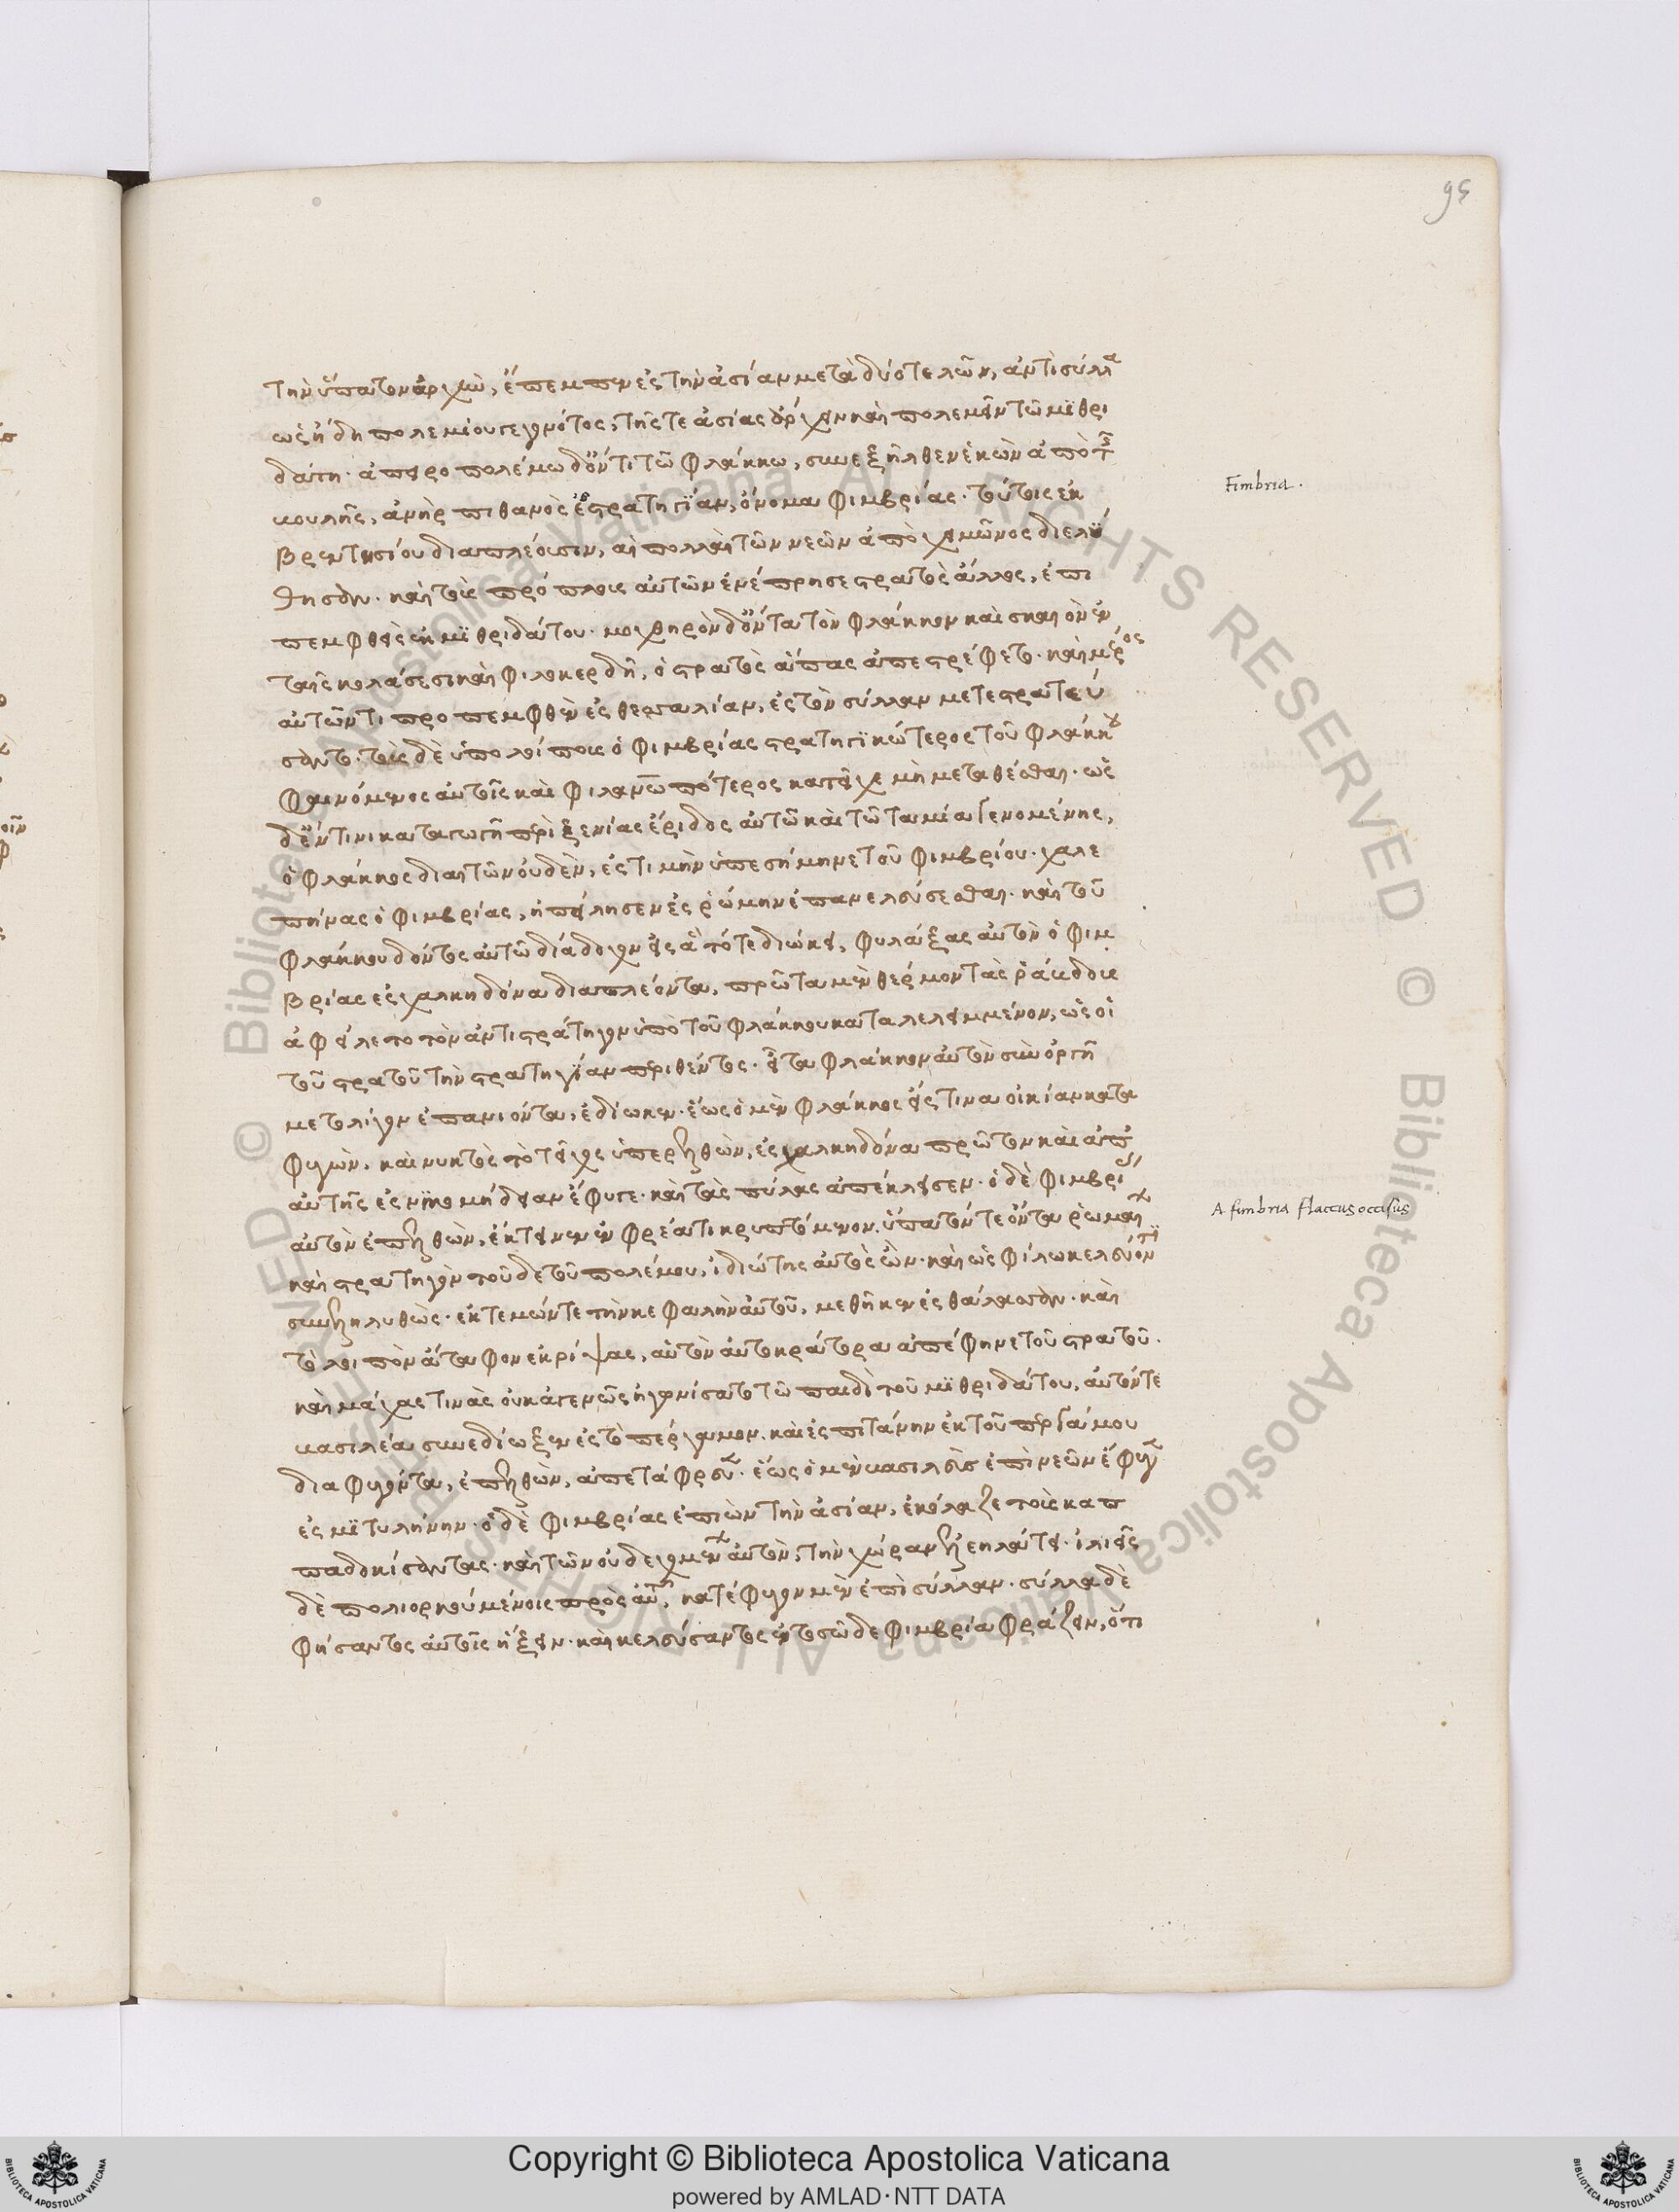 95
τὴν ὕπατον ἀρχὴν, ἔπεμπεν ἐς τὴν ἀσίαν μετὰ δύο τελῶν, ἀντὶ σύλλα
ὡς ἤδη πολεμίου γεγονότος, τῆς τε ἀσίας ἄρχειν καὶ πολεμεῖν τῶ μιθρι
δάτη. ἀπειροπολέμω δ' ὄντι τῶ φλάκκω, συνεξῆλθεν ἑκὼν ἀπὸ τῆς
Fimbria.
βουλῆς, ἀνὴρ πιθανὸς ἐς στρατηγίαν, ὄνομα φιμβρίας. τούτοις ἐκ
βρεντησίου διαπλέουσιν, αἱ πολλαὶ τῶν νεῶν ἀπὸ χειμῶνος διελύ
θησαν. καὶ τὰς πρόπλους αὐτῶν ἐνέπρησε στρατὸς ἄλλος, ἐπι
πεμφθεὶς ἐκ μιθριδάτου. μοχθηρὸν δ' ὄντα τὸν φλάκκον καὶ σκαιὸν ἐν
ταῖς κολάσεσι καὶ φιλοκερδῆ, ὁ στρατὸς ἅπας ἀπεστρέφετο. καὶ μέρος
αὐτῶν τι προπεμφθὲν ἐς θεσσαλίαν, ἐς τὸν σύλλαν μετεστρατεύ
σαντο. τοὺς δὲ ὑπολοίπους ὁ φιμβρίας στρατηγικώτερος τοῦ φλάκκου
φαινόμενος αὐτοῖς καὶ φιλανωπότερος κατεῖχε μὴ μεταθέσθαι. ὡς
δ' ἔν τινι καταγωγῆ περὶ ξενίας ἔριδος αὐτῶ καὶ τῶ ταμία γενομένης,
ὁ φλάκκος διαιτῶν οὐδὲν, ἐς τιμὴν ὑπεσήμηνε τοῦ φιμβρίου. χαλε
πήνας ὁ φιμβρίας, ἠπείλησεν ἐς ῥώμην ἐπανελεύσεσθαι. καὶ τοῦ
φλάκκου δόντος αὐτῶ διάδοχον ἐς ἃ τότε διώκει, φυλάξας αὐτὸν ὁ φιμ
βρίας ἐς χαλκηδόνα διαπλέοντα, πρῶτα μὲν θέρμον τὰς ῥάβδους
ἀφείλετο τὸν ἀντιστράτηγον ὑπὸ τοῦ φλάκκου καταλελειμμένον, ὡς οἱ
τοῦ στρατοῦ τὴν στρατηγίαν περιθέντος. εἶτα φλάκκον αὐτὸν σὺν ὀργῆ
μετ' ὀλίγον ἐπανιόντα, ἐδίωκεν. ἕως ὁ μὲν φλάκκος ἔς τινα οἰκίαν κατα
φυγὼν. καὶ νυκτὸς τὸ τεῖχος ὑπερελθὼν, ἐς χαλκηδόνα πρῶτον καὶ ἀπ'
αὐτῆς ἐς νικομήδειαν ἔφυγε. καὶ τὰς πύλας ἀπέκλεισεν. ὁ δὲ φιμβρί
A fimbria flaccus occisus
αὐτὸν ἐπελθὼν, ἔκτεινεν ἐν φρέατι κρυπτόμενον. ὕπατόν τε ὄντα ῥωμαι
καὶ στρατηγὸν τοῦδε τοῦ πολέμου, ἰδιώτης αὐτὸς ὢν. καὶ ὡς φίλω κελεύοντι
συνεληλυθὼς. ἐκτεμών τε τὴν κεφαλὴν αὐτοῦ, μεθῆκεν ἐς θάλασσαν. καὶ
τὸ λοιπὸν ἄταφον ἐκρίψας, αὑτὸν αὐτοκράτορα ἀπέφηνε τοῦ στρατοῦ.
καὶ μάχας τινὰς οὐκ ἀγεννῶς ἠγωνίσατο τῶ παιδὶ τοῦ μιθριδάτου, αὐτόν τε
βασιλέα συνεδίωξεν ἐς τὸ πέργαμον. καὶ ἐς πιτάνην ἐκ τοῦ περγάμου
διαφυγόντα, ἐπελθὼν, ἀπετάφρευε. ἕως ὁ μὲν βασιλεὺς ἐπὶ νεῶν ἔφυγε
ἐς μιτυλήνην. ὁ δὲ φιμβρίας ἐπιὼν τὴν ἀσίαν, ἐκόλαζε τοὺς καπ
παδοκίσαντας. καὶ τῶν οὐ δεχομένων αὐτὸν, τὴν χώραν ἐλεηλάτει. ἰλιεῖς
δὲ πολιορκούμενοι πρὸς αὐτοῦ, κατέφυγον μὲν ἐπὶ σύλλαν. σύλλα δὲ
φήσαντος αὐτοῖς ἥξειν. καὶ κελεύσαντος ἐν τοσῶδε φιμβρία φράζειν, ὅτι
Copyright © Biblioteca Apostolica Vaticana
powered by AMLAD·NTT DATA